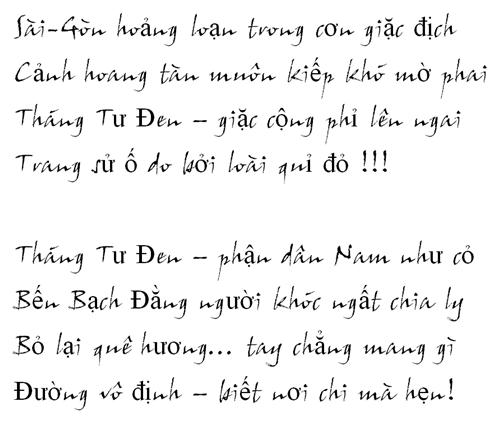 Sài-Gòn hoảng loạn trong cơn giặc địch
Cảnh hoang tàn muôn kiếp khó mờ phai
Tháng Tư Đen – giặc cộng phỉ lên ngai
Trang sử ố do bởi loài quỉ đỏ !!!
Tháng Tư Đen – phận dân Nam như cỏ
Bến Bạch Đằng người khóc ngất chia ly
Bỏ lại quê hương... tay chẳng mang gì
Đường vô định – biết nơi chi mà hẹn!